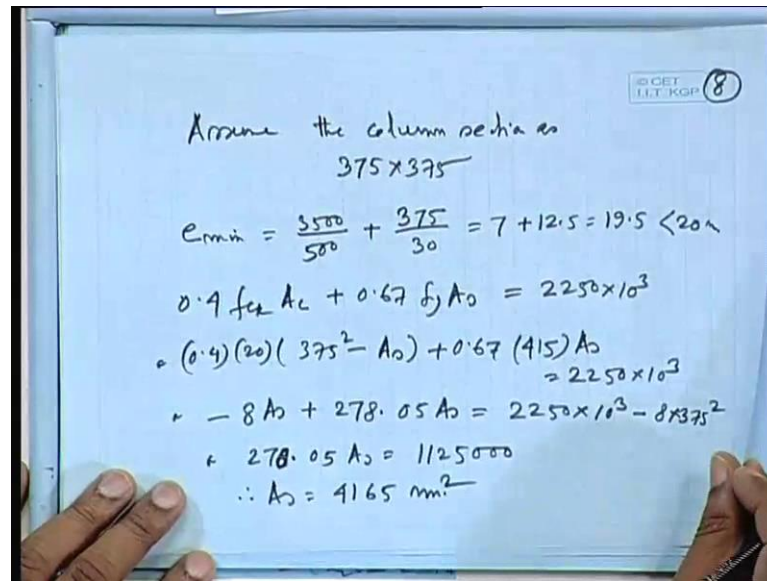 © CET
I.I.T KGP
8
Assume the column section as
375 × 375
emin = 3500/500 + 375/30 = 7 + 12.5 = 19.5 < 20 m
0.4 fck Ac + 0.67 fy As = 2250 × 10³
(0.4)(20)(375² - As) + 0.67 (415) As
= 2250 × 10³
- 8 As + 278.05 As = 2250 × 10³ - 8 × 375²
270.05 As = 1125000
∴ As = 4165 mm²